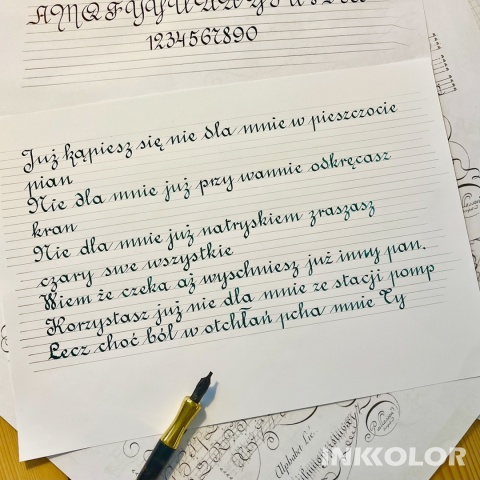 1234567890
Już kąpiesz się nie dla mnie w pieszczocie
pian
Nie dla mnie już przy wannie odkręcasz
kran
Nie dla mnie już natryskiem zraszasz
czary swe wszystkie
Wiem że czeka aż wyschniesz już inny pan.
Korzystasz już nie dla mnie ze stacji pomp
Lecz choć ból w otchłań pcha mnie Ty
Alphabet Lié
INKKOLOR